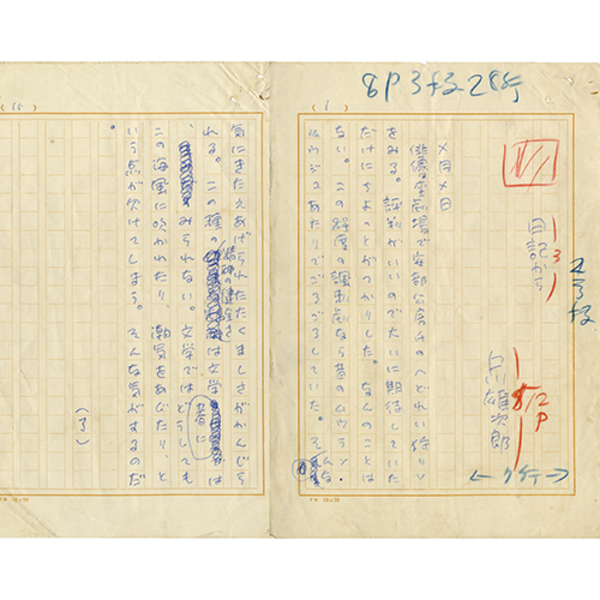 8P 3段28行
2号板
(1)
日記から
(3)
白川雄次郎
5/12P
←7行→
×月×日
俳優座劇場で安部公房氏のへどれい狩り〉
をみる。評判がいいので大いに期待していた
だけにちょっとがっかりした。なんのことは
ない。この程度の諷刺劇なら昔のムウラン・
ルウジュあたりでごろごろしていた。そんな
(15)
気にきたえあげられたたくましさがかんじら
れる。この種の精神の健全さは文学では
みられない。文学ではどうしても
この海風に吹かれたり、潮気をあんだり、と
いう点が欠けてしまう。そんな気がするのだ
。
(了)